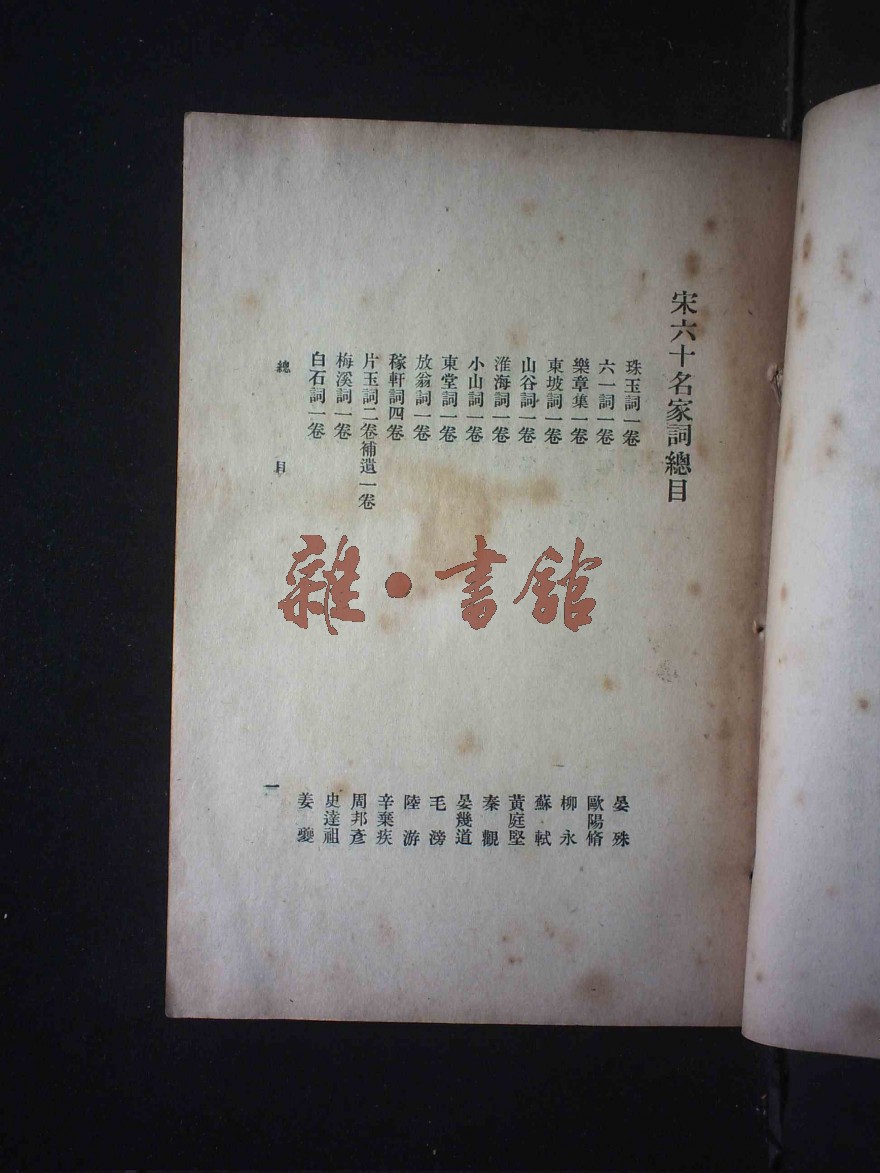 宋六十名家詞總目
珠玉詞一卷 晏殊
六一詞一卷 歐陽脩
樂章集一卷 柳永
東坡詞一卷 蘇軾
山谷詞一卷 黃庭堅
淮海詞一卷 秦觀
小山詞一卷 晏幾道
東堂詞一卷 毛滂
放翁詞一卷 陸游
稼軒詞四卷 辛棄疾
片玉詞二卷補遺一卷 周邦彥
梅溪詞一卷 史達祖
白石詞一卷 姜夔
總目 一
雜·書館